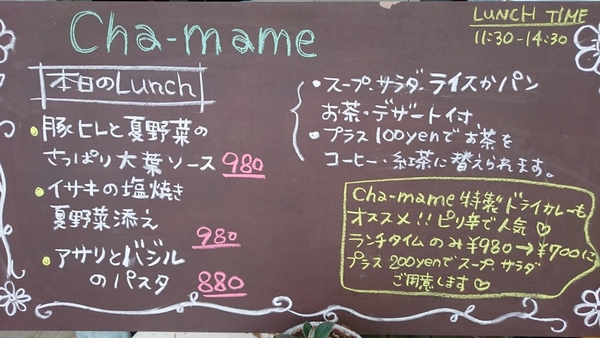 Cha-mame
LUNCH TIME
11:30-14:30
本日のLunch
・豚ヒレと夏野菜の
さっぱり大葉ソース 980
・イサキの塩焼き
夏野菜添え
980
・アサリとバジル
のパスタ 880
・スープ、サラダ、ライスかパン
お茶・デザート付
・プラス100yenでお茶を
コーヒー・紅茶に替えられます。
Cha-mame特製ドライカレーも
オススメ!!ピリ辛で人気♡
ランチタイムのみ¥980→¥700に
プラス200yenでスープ、サラダ
ご用意します♡